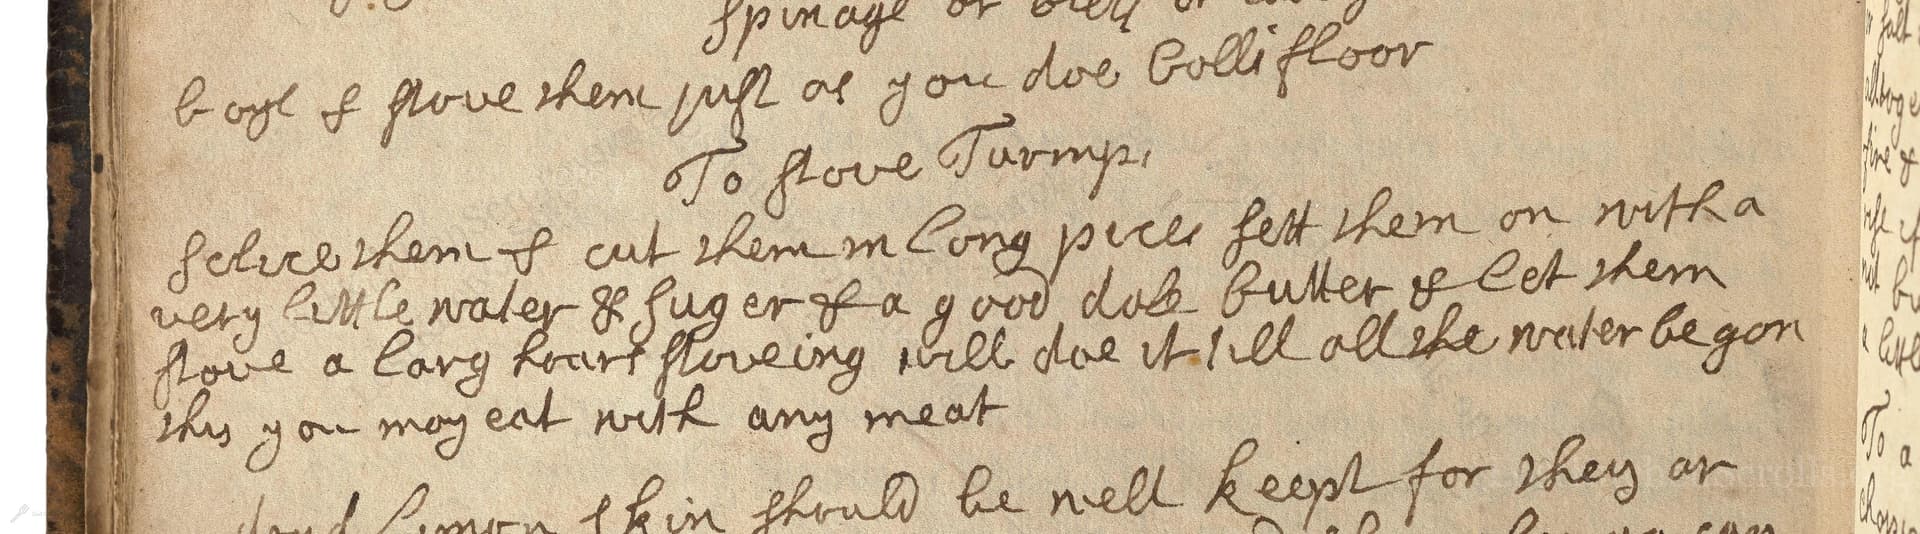 spinage or
boyl & stove them just as you doe Collifloor
To stove Turnips
sclice them & cut them in long pices sett them on with a
very little water & suger & a good dale butter & let them
stove a larg hours stoveing will doe it till all the water be gon
this you may eat with any meat
dryd Limon skin should be well keept for they ar